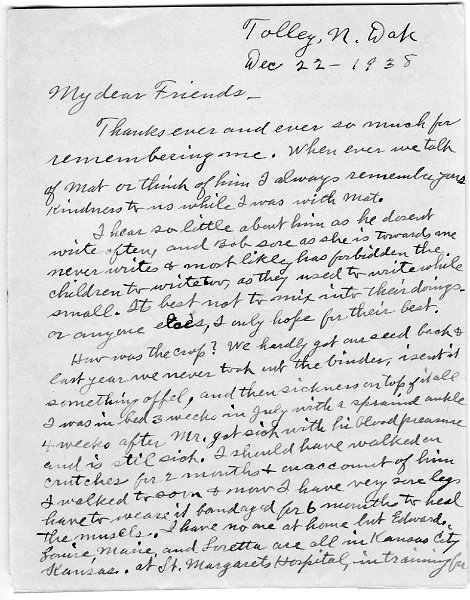 Tolley, N. Dak
Dec 22 - 1938
My dear Friends -
Thanks ever and ever so much for
remembering me. When ever we talk
of Mat or think of him I always remember your
kindness to us while I was with Mat.
I hear so little about him as he dosent
write often, and Bob sore as she is towards me
never writes & most likley has forbidden the
children to write too, as they used to write while
small. Its best not to mix into their doings
or anyone elses, I only hope for their best.
How was the crop? We hardly got our seed back &
last year we never took out the binder, isent it
something offel, and then sickness on top of it all
I was in bed 3 weeks in July with a spraind ankle
& weeks after Mr. got sick with his blood preasure
and is still sick. I should have walked on
crutches for 2 months & on account of him
I walked to soon & now I have very sore legs
have to weare it bandaged for 6 months to heal
the musels. I have no one at home but Edward.
Louise, Marie, and Loretta are all in Kansas City,
Kansas. at St. Margarets Hospital, in training for